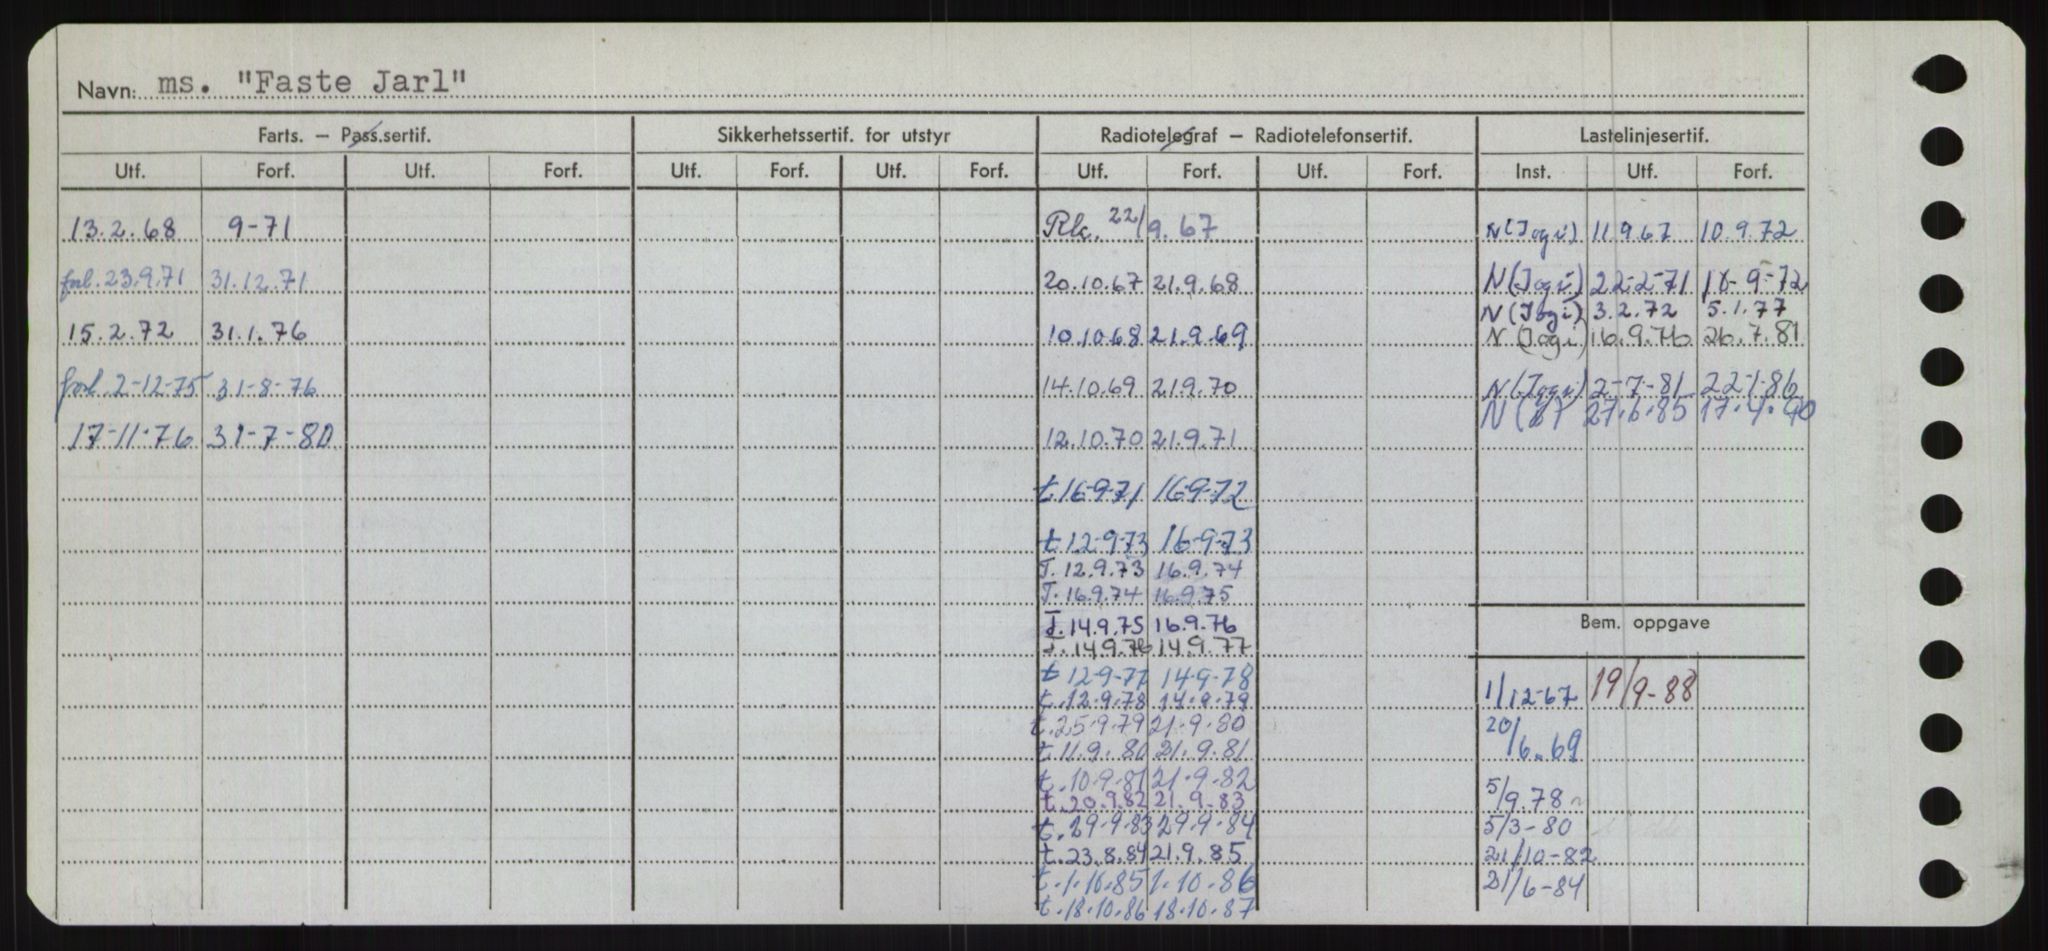 Navn: ms. "Faste Jarl"
Farts. – Pass.sertif. Sikkerhetssertif. for utstyr Radiotelegraf – Radiotelefonsertif. Lastelinjesertif.
Utf. Forf. Utf. Forf. Utf. Forf. Utf. Forf. Utf. Forf. Utf. Forf. Inst. Utf. Forf.
13.2.68 9-71
forl. 23.9.71 31.12.71
15.2.72 31.1.76
forl. 2-12-75 31-8-76
17-11-76 31-7-80
Rk. 22/9.67
20.10.67 21.9.68
10.10.68 21.9.69
14.10.69 21.9.70
12.10.70 21.9.71
t.16-9-71 16-9-72
t 12-9-73 16-9-73
T. 12.9.73 16.9.74
T. 16.9.74 16.9.75
T. 14.9.75 16.9.76
T. 14.9.76 14.9.77
t 12-9-77 14-9-78
t. 12.9.78 14.9.79
t. 25.9.79 21.9.80
t. 11.9.80 21.9.81
t. 10.9.81 21.9.82
t. 20.9.82 21.9.83
t. 29.9.83 29.9.84
t. 23.8.84 21.9.85
t. 1.10.85 1.10.86
t. 18.10.86 18.10.87
N (Jogi) 11.9.67 10.9.72
N (Jogi) 22-2-71 10-9-72
N (Jogi) 3.2.72 5.1.77
N (Jogi) 16.9.76 26.7.81
N (Joggi) 2-7-81 22-1-86
N (B) 27.6.85 17.4.90
Bem. oppgave
1/12-67 19/9-88
20/6.69
5/9.78
5/3-80
21/10-82
21/6-84